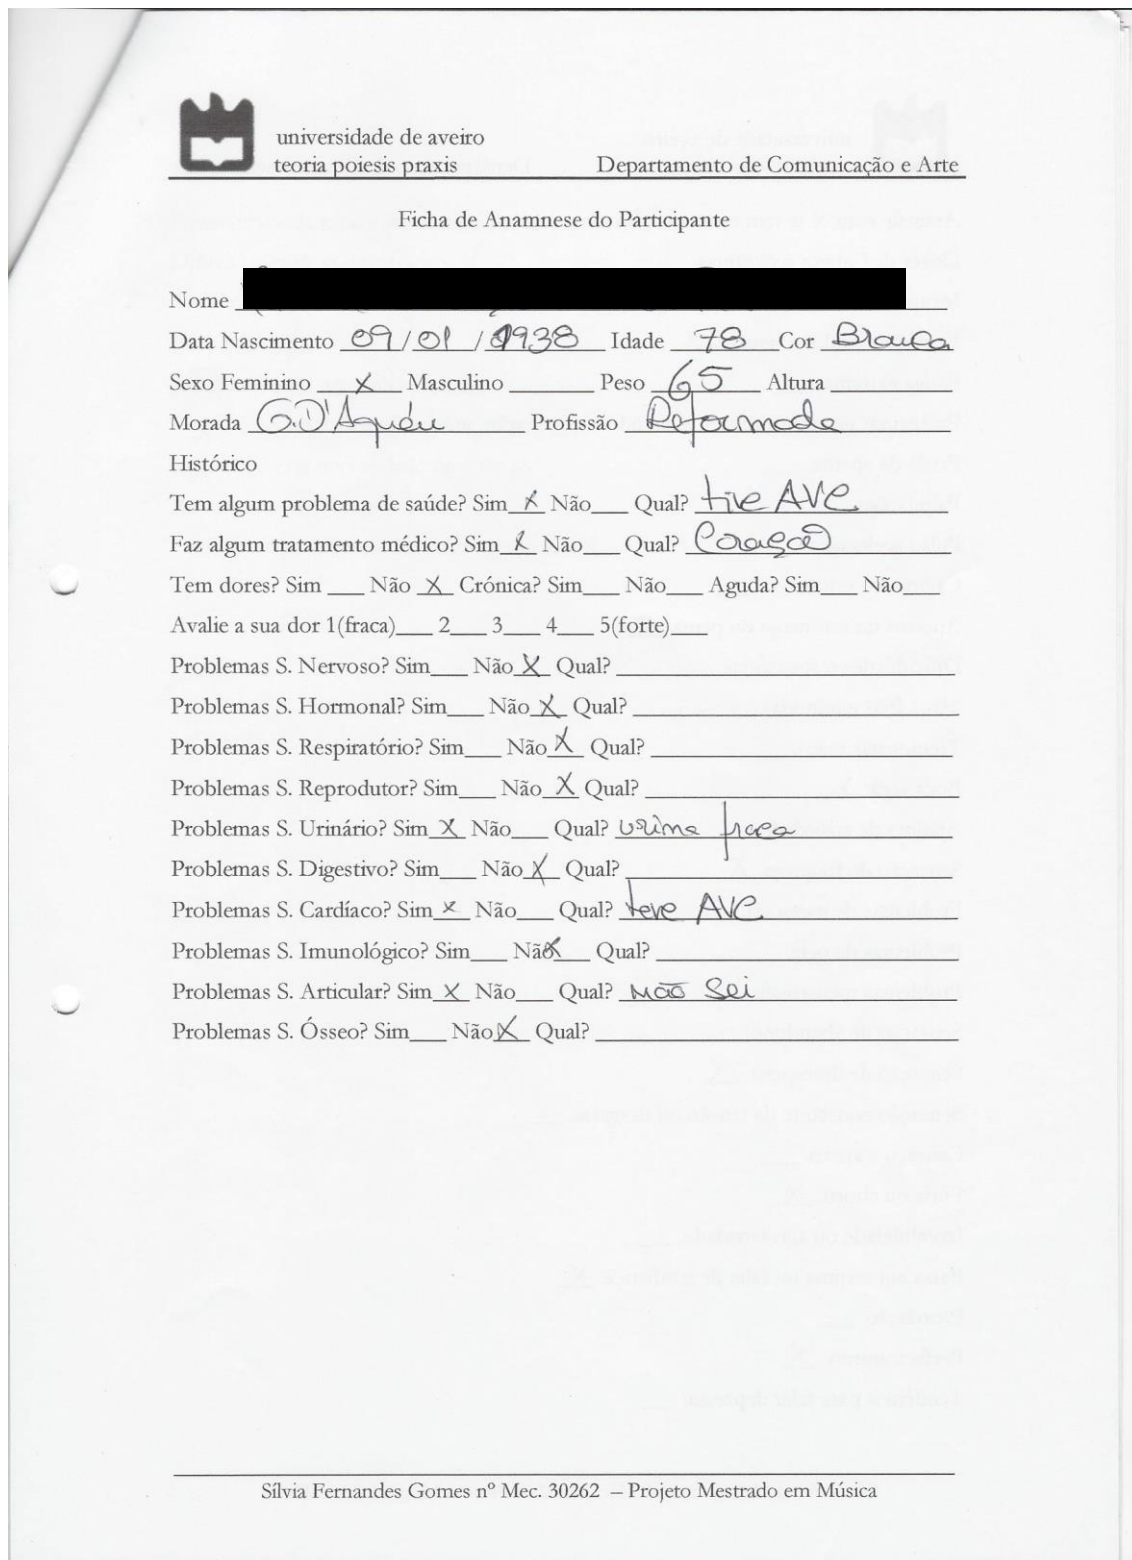 universidade de aveiro
teoria poiesis praxis Departamento de Comunicação e Arte
Ficha de Anamnese do Participante
Nome
Data Nascimento 09/01/1938 Idade 78 Cor Branca
Sexo Feminino x Masculino Peso 65 Altura
Morada G.D'Aguéu Profissão Reformada
Histórico
Tem algum problema de saúde? Sim x Não Qual? tive AVC
Faz algum tratamento médico? Sim x Não Qual? Coração
Tem dores? Sim Não X Crónica? Sim Não Aguda? Sim Não
Avalie a sua dor 1(fraca) 2 3 4 5(forte)
Problemas S. Nervoso? Sim Não X Qual?
Problemas S. Hormonal? Sim Não X Qual?
Problemas S. Respiratório? Sim Não X Qual?
Problemas S. Reprodutor? Sim Não X Qual?
Problemas S. Urinário? Sim X Não Qual? urina fraca
Problemas S. Digestivo? Sim Não X Qual?
Problemas S. Cardíaco? Sim x Não Qual? teve AVC
Problemas S. Imunológico? Sim Não X Qual?
Problemas S. Articular? Sim X Não Qual? não sei
Problemas S. Ósseo? Sim Não X Qual?
Sílvia Fernandes Gomes nº Mec. 30262 – Projeto Mestrado em Música